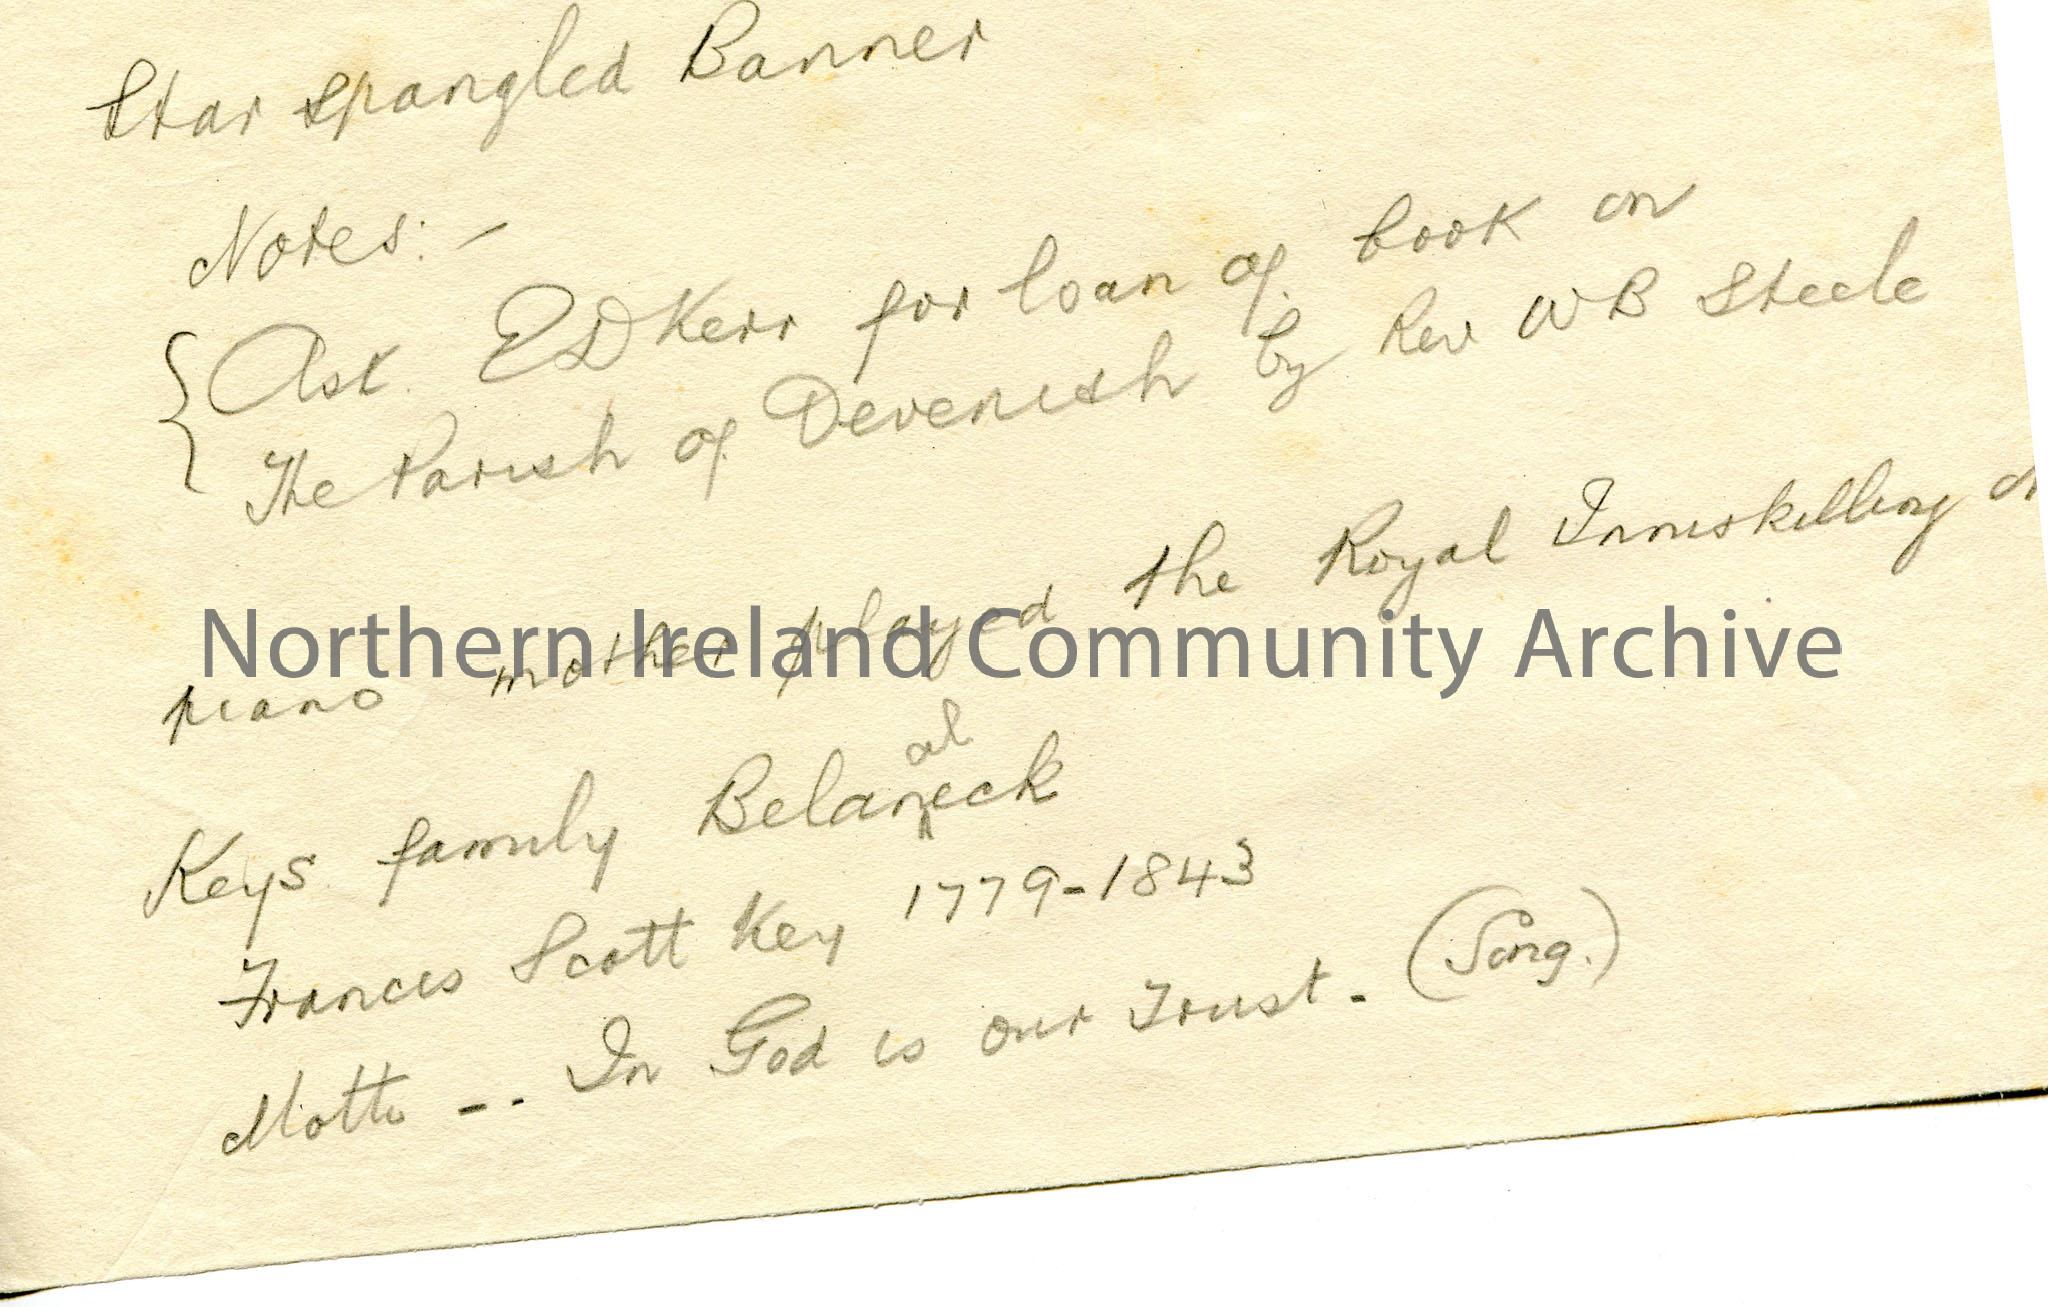 Star Spangled Banner
Notes:-
Ask E D Kerr for loan of book on
The Parish of Devenish by Rev W B Steele
piano mother played the Royal Inniskilling
Northern Ireland Community Archive
al
Keys family Belaneck
Francis Scott Key 1779-1843
Motto -- In God is our Trust - (Song.)